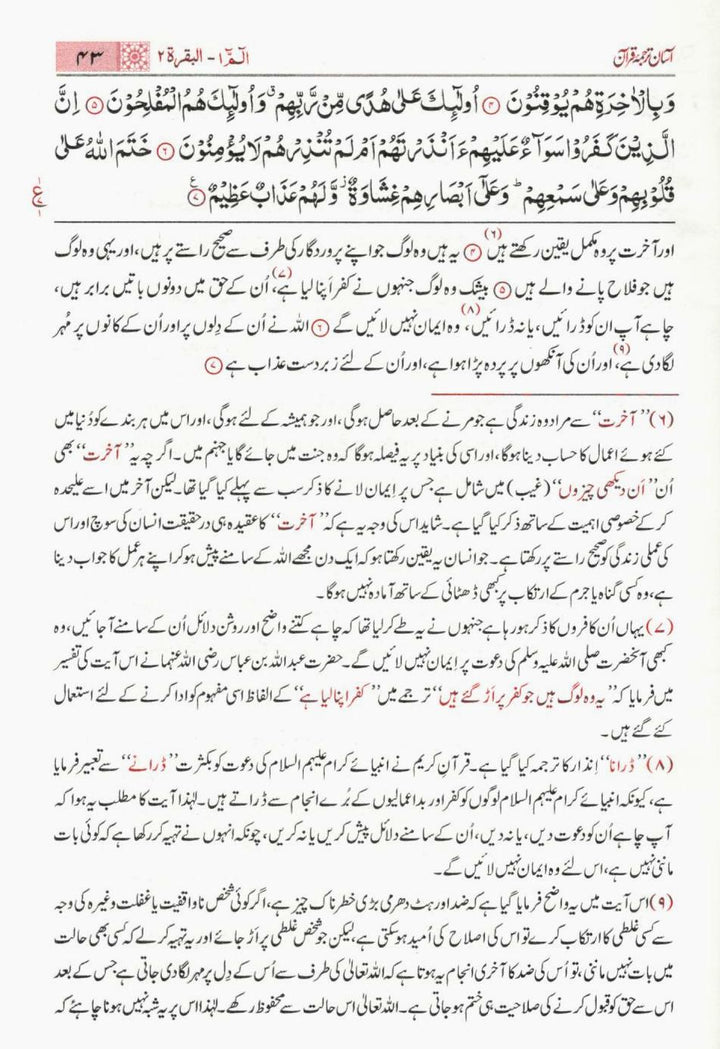 آسان ترجمۂ قرآن
الٓمّٓ ۱ - البقرۃ ۲
۴۳
وَبِالْاٰخِرَةِ هُمْ يُوْقِنُوْنَ ۴ اُولٰٓئِكَ عَلٰى هُدًى مِّنْ رَّبِّهِمْ ۙ وَاُولٰٓئِكَ هُمُ الْمُفْلِحُوْنَ ۵ اِنَّ
الَّذِيْنَ كَفَرُوْا سَوَآءٌ عَلَيْهِمْ ءَاَنْذَرْتَهُمْ اَمْ لَمْ تُنْذِرْهُمْ لَا يُؤْمِنُوْنَ ۶ خَتَمَ اللّٰهُ عَلٰى
قُلُوْبِهِمْ وَعَلٰى سَمْعِهِمْ ؕ وَعَلٰٓى اَبْصَارِهِمْ غِشَاوَةٌ ۫ وَّلَهُمْ عَذَابٌ عَظِيْمٌ ۷
اور آخرت پر وہ مکمل یقین رکھتے ہیں (۶) ۴ یہ ہیں وہ لوگ جو اپنے پروردگار کی طرف سے صحیح راستے پر ہیں، اور یہی وہ لوگ
ہیں جو فلاح پانے والے ہیں ۵ بیشک وہ لوگ جنہوں نے کفر اَپنا لیا ہے، (۷) اُن کے حق میں دونوں باتیں برابر ہیں،
چاہے آپ ان کو ڈرائیں، یا نہ ڈرائیں، (۸) وہ ایمان نہیں لائیں گے ۶ اللہ نے اُن کے دِلوں پر اور اُن کے کانوں پر مُہر
لگا دی ہے، (۹) اور اُن کی آنکھوں پر پردہ پڑا ہوا ہے، اور اُن کے لئے زبردست عذاب ہے ۷
(۶) ”آخرت“ سے مراد وہ زندگی ہے جو مرنے کے بعد حاصل ہوگی، اور جو ہمیشہ کے لئے ہوگی، اور اس میں ہر بندے کو دُنیا میں
کئے ہوئے اعمال کا حساب دینا ہوگا، اور اسی کی بنیاد پر یہ فیصلہ ہوگا کہ وہ جنت میں جائے گا یا جہنم میں۔ اگر چہ یہ ”آخرت“ بھی
اُن ”اَن دیکھی چیزوں“ (غیب) میں شامل ہے جس پر اِیمان لانے کا ذکر سب سے پہلے کیا گیا تھا۔ لیکن آخر میں اسے علیحدہ
کر کے خصوصی اہمیت کے ساتھ ذکر کیا گیا ہے۔ شاید اس کی وجہ یہ ہے کہ ”آخرت“ کا عقیدہ ہی درحقیقت انسان کی سوچ اور اس
کی عملی زندگی کو صحیح راستے پر رکھتا ہے۔ جو انسان یہ یقین رکھتا ہو کہ ایک دن مجھے اللہ کے سامنے پیش ہو کر اپنے ہر عمل کا جواب دینا
ہے، وہ کسی گناہ یا جرم کے ارتکاب پر کبھی ڈھٹائی کے ساتھ آمادہ نہیں ہوگا۔
(۷) یہاں اُن کافروں کا ذکر ہو رہا ہے جنہوں نے یہ طے کر لیا تھا کہ چاہے کتنے واضح اور روشن دلائل اُن کے سامنے آ جائیں، وہ
کبھی آنحضرت صلی اللہ علیہ وسلم کی دعوت پر اِیمان نہیں لائیں گے۔ حضرت عبداللہ بن عباس رضی اللہ عنہما نے اس آیت کی تفسیر
میں فرمایا کہ ”یہ وہ لوگ ہیں جو کفر پر اَڑ گئے ہیں“ ترجمے میں ”کفر اپنا لیا ہے“ کے الفاظ اسی مفہوم کو ادا کرنے کے لئے استعمال
کئے گئے ہیں۔
(۸) ”ڈرانا“ اِنذار کا ترجمہ کیا گیا ہے۔ قرآنِ کریم نے انبیائے کرام علیہم السلام کی دعوت کو بکثرت ”ڈرانے“ سے تعبیر فرمایا
ہے، کیونکہ انبیائے کرام علیہم السلام لوگوں کو کفر اور بداعمالیوں کے بُرے انجام سے ڈراتے ہیں۔ لہٰذا آیت کا مطلب یہ ہوا کہ
آپ چاہے اُن کو دعوت دیں، یا نہ دیں، اُن کے سامنے دلائل پیش کریں یا نہ کریں، چونکہ انہوں نے تہیہ کر رکھا ہے کہ کوئی بات
ماننی نہیں ہے، اس لئے وہ ایمان نہیں لائیں گے۔
(۹) اس آیت میں یہ واضح فرمایا گیا ہے کہ ضد اور ہٹ دھرمی بڑی خطرناک چیز ہے، اگر کوئی شخص ناواقفیت یا غفلت وغیرہ کی وجہ
سے کسی غلطی کا ارتکاب کرے تو اس کی اصلاح کی اُمید ہوسکتی ہے، لیکن جو شخص غلطی پر اَڑ جائے اور یہ تہیہ کر لے کہ کسی بھی حالت
میں بات نہیں ماننی، تو اُس کی ضد کا آخری انجام یہ ہوتا ہے کہ اللہ تعالیٰ کی طرف سے اُس کے دِل پر مہر لگا دی جاتی ہے جس کے بعد
اس سے حق کو قبول کرنے کی صلاحیت ہی ختم ہو جاتی ہے۔ اللہ تعالیٰ اس حالت سے محفوظ رکھے۔ لہٰذا اس پر یہ شبہ نہیں ہونا چاہئے کہ